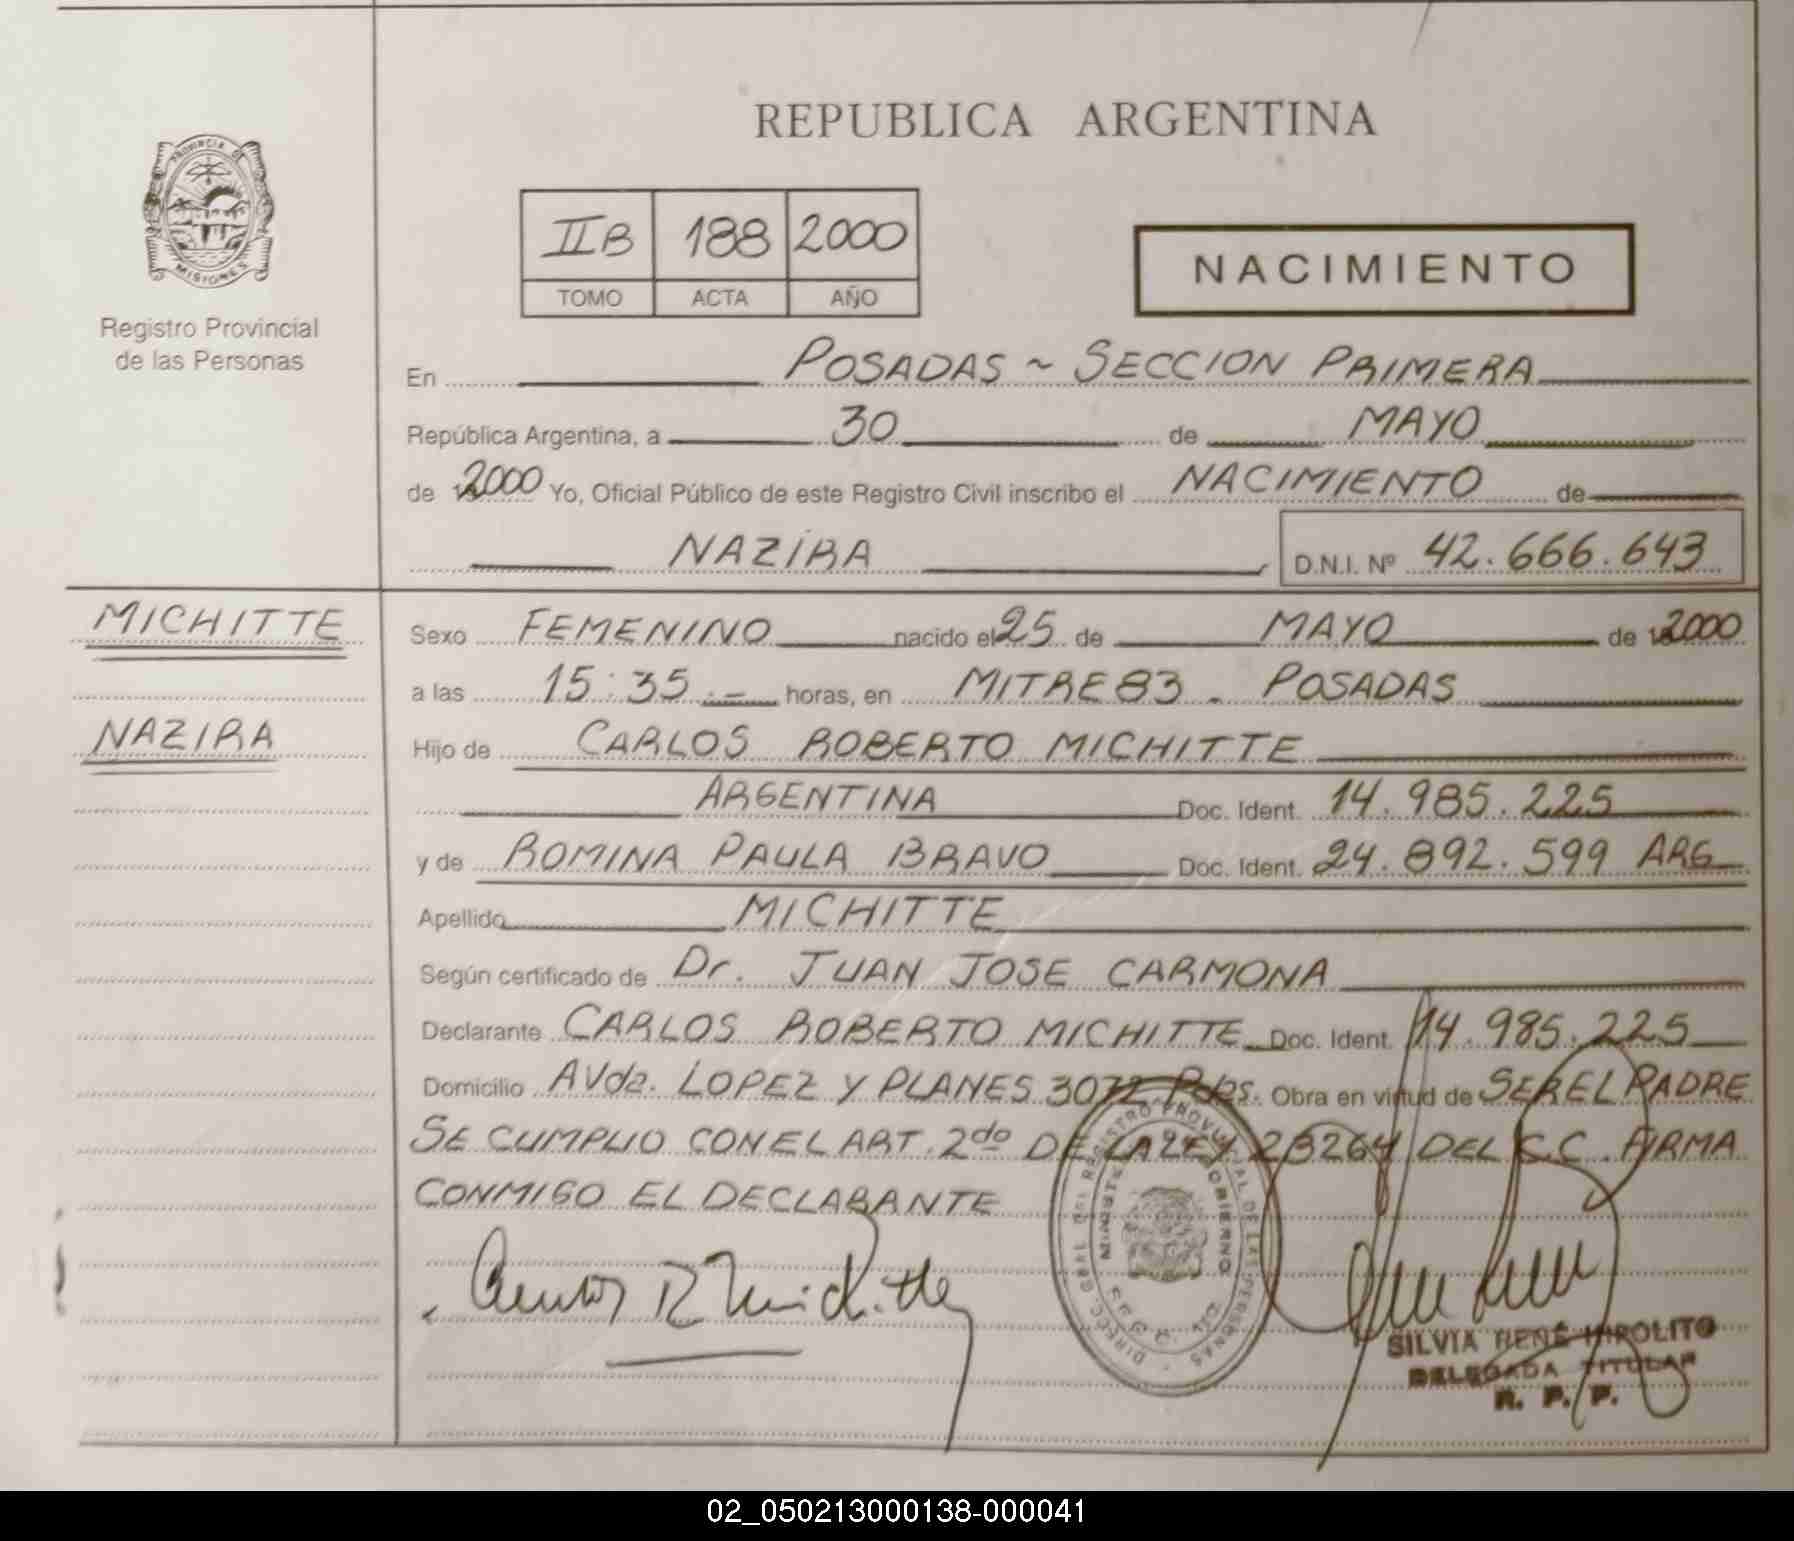 REPUBLICA ARGENTINA
PROVINCIA DE
MISIONES
Registro Provincial
de las Personas
IIB 188 2000
TOMO ACTA AÑO
NACIMIENTO
En POSADAS ~ SECCION PRIMERA
República Argentina, a 30 de MAYO
de 2000 Yo, Oficial Público de este Registro Civil inscribo el NACIMIENTO de
NAZIRA D.N.I. Nº 42.666.643
MICHITTE
NAZIRA
Sexo FEMENINO nacido el 25 de MAYO de 2000
a las 15:35.- horas, en MITRE 83 - POSADAS
Hijo de CARLOS ROBERTO MICHITTE
ARGENTINA Doc. Ident. 14.985.225
y de ROMINA PAULA BRAVO Doc. Ident. 24.892.599 ARG
Apellido MICHITTE
Según certificado de Dr. JUAN JOSE CARMONA
Declarante CARLOS ROBERTO MICHITTE Doc. Ident. 14.985.225
Domicilio AVda. LOPEZ Y PLANES 3072 Pdas. Obra en virtud de SER EL PADRE
SE CUMPLIO CON EL ART. 2do DE LA LEY 23264 DEL C.C. FIRMA
CONMIGO EL DECLARANTE
DIRECC. GRAL. DEL REGISTRO PROVINCIAL DE LAS PERSONAS
GOBIERNO
SILVIA RENÉ HIPOLITO
DELEGADA TITULAR
R. P. P.
02_050213000138-000041